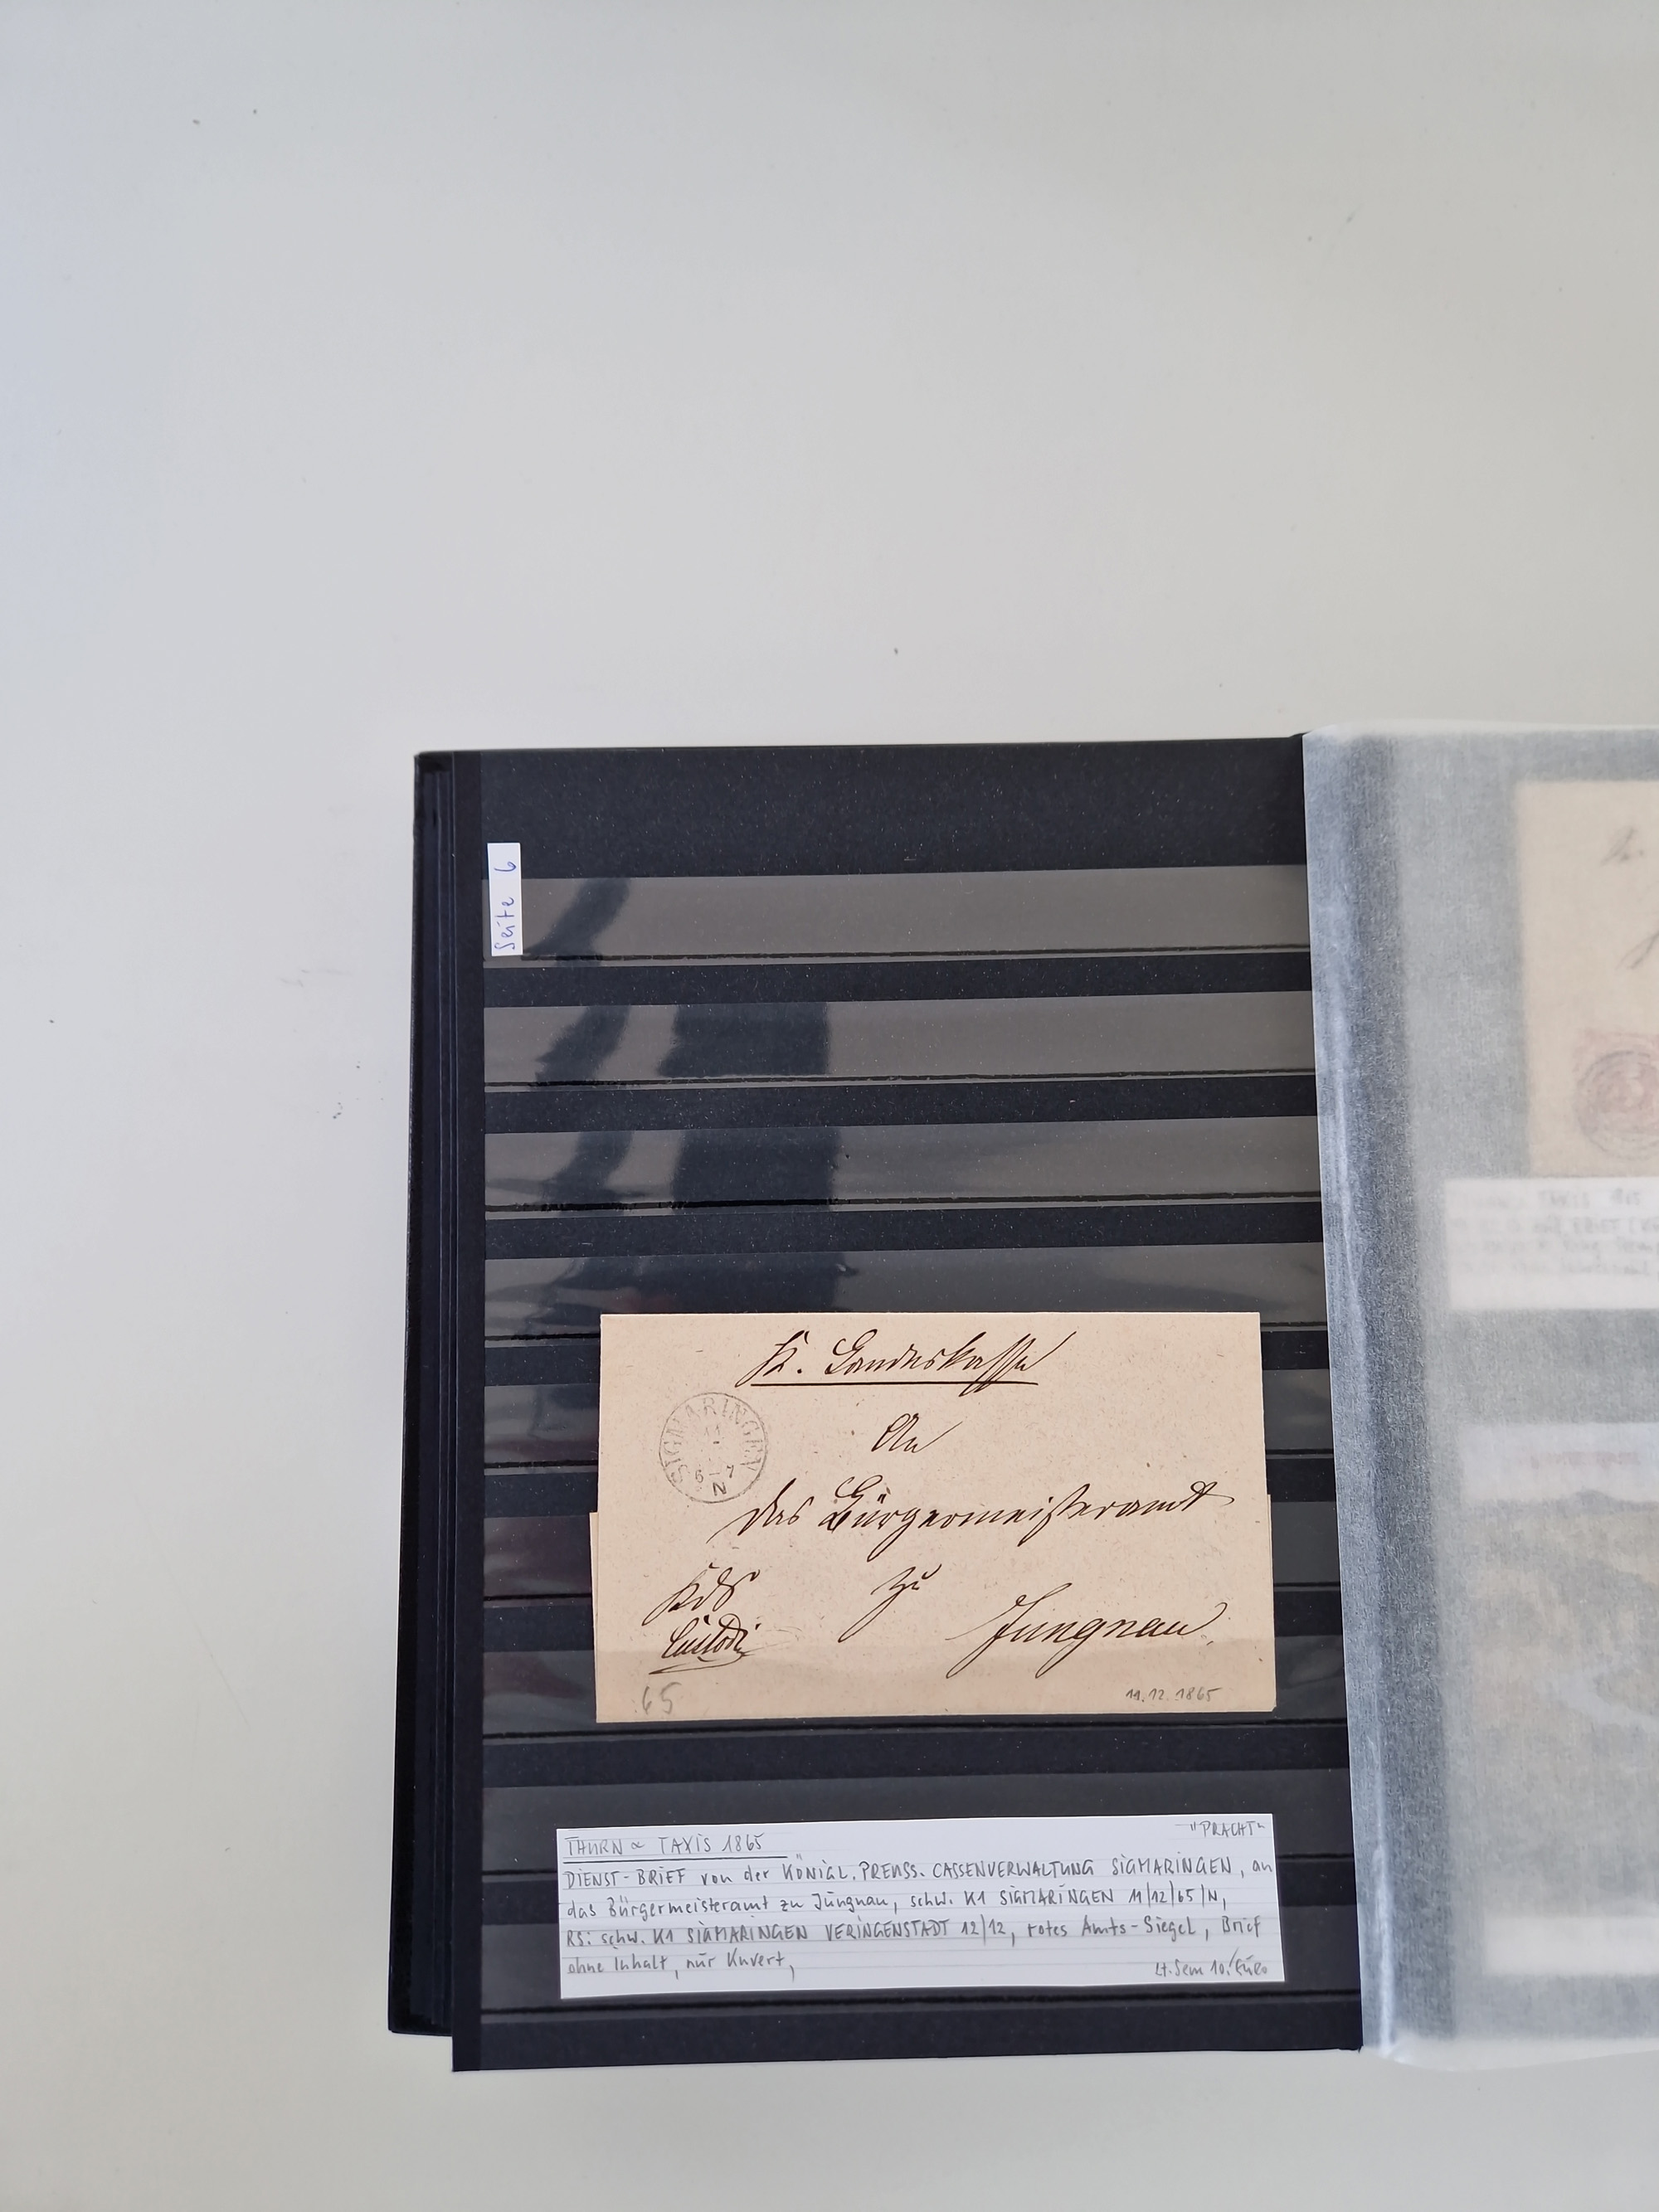 Seite 6
K. Landeskasse
SIGMARINGEN
6-7
N
An
das Bürgermeisteramt
zu
Jungnau.
65
11.12.1865
"PRACHT"
THURN & TAXIS 1865
DIENST-BRIEF von der KÖNIGL. PREUSS. CASSENVERWALTUNG SIGMARINGEN, an
das Bürgermeisteramt zu Jungnau, schw. K1 SIGMARINGEN 11/12/65/N,
RS: schw. K1 SIGMARINGEN VERINGENSTADT 12/12, rotes Amts-Siegel, Brief
ohne Inhalt, nur Kuvert,
Lt. Sem 10./Euro